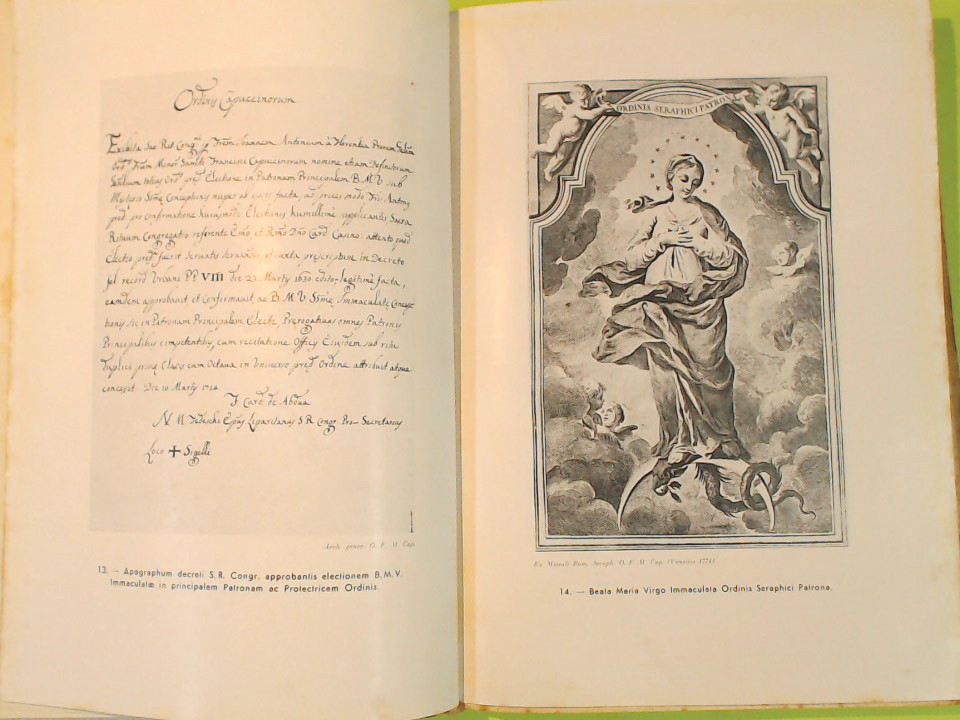 Ordinis Capuccinorum
Exhibita Sac Rit Cong Fratrem Joannem Antonium à Florentia Procur Gnlem
Ord Fratm Minor Sancti Francisci Capuccinorum nomine etiam Definitorum
totius Ord pred Electione in Patronam Principalem B. M. V. sub
Mysterio Ssmę Conceptionis nuper ab facta, ad preces modo Antonij
pred pro confirmatione huiusmodi Electionis humillimè supplicantis Sacra
Rituum Congregatio referente Emo et Rmo Dno Card Casino, attento quod
Electio pred fuerit servatis servandis, et juxta prescriptum in Decreto
fel record Urbani PP VIII die 23 Martij 1630 edito legitimè facta,
eamdem approbavit et Confirmavit, ac B M V Ssmę Immaculatę Concep-
tionis sic in Patronam Principalem Electę Prerogativas omnes Patronis
Principalibus competentibus, cum recitatione Officij Eiusdem sub ritu
Duplici primę Classis cum Octava in Universo pred Ordine attribuit atque
concessit Die 10 Martij 1714
F Card de Abdua
N. M. Tedeschi Epus Liparitanus S R Congr Pro-Secretarius
Loco ✝ Sigilli
Arch. gener. O. F. M. Cap.
13. — Apographum decreti S. R. Congr. approbantis electionem B. M. V.
Immaculatæ in principalem Patronam ac Protectricem Ordinis.
ORDINIS SERAPHICI PATRONA
Ex Missali Rom. Seraph. O. F. M. Cap. (Venetiis 1774).
14. — Beata Maria Virgo Immaculata Ordinis Seraphici Patrona.